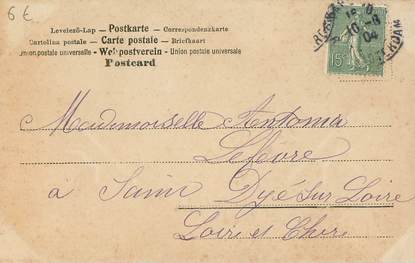 6 €
Levelező-Lap — Postkarte — Correspondenzkarte
Cartolina postale — Carte postale — Briefkaart
Union postale universelle — Weltpostverein — Union postale universale
Postcard
15
10-8
04
Mademoiselle Antonia
Lefèvre
à Saint Dyé sur Loire
Loir et Cher